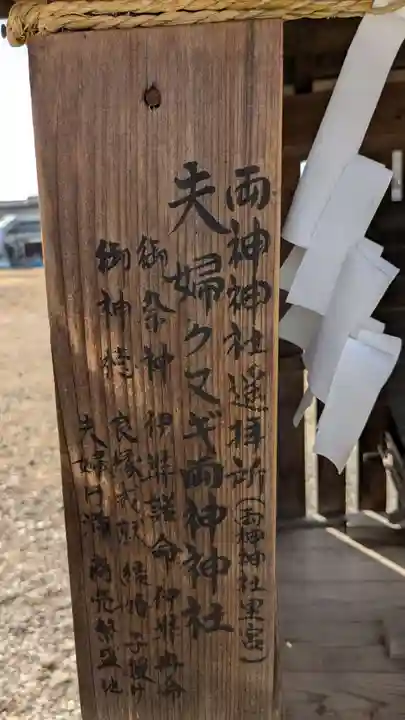 両神神社遥拝所(両神神社里宮)
夫婦クヌギ両神神社
御祭神 伊弉諾命 伊弉冉命
御神徳 良縁成就 縁結 子授け
夫婦円満 商売繁盛 他